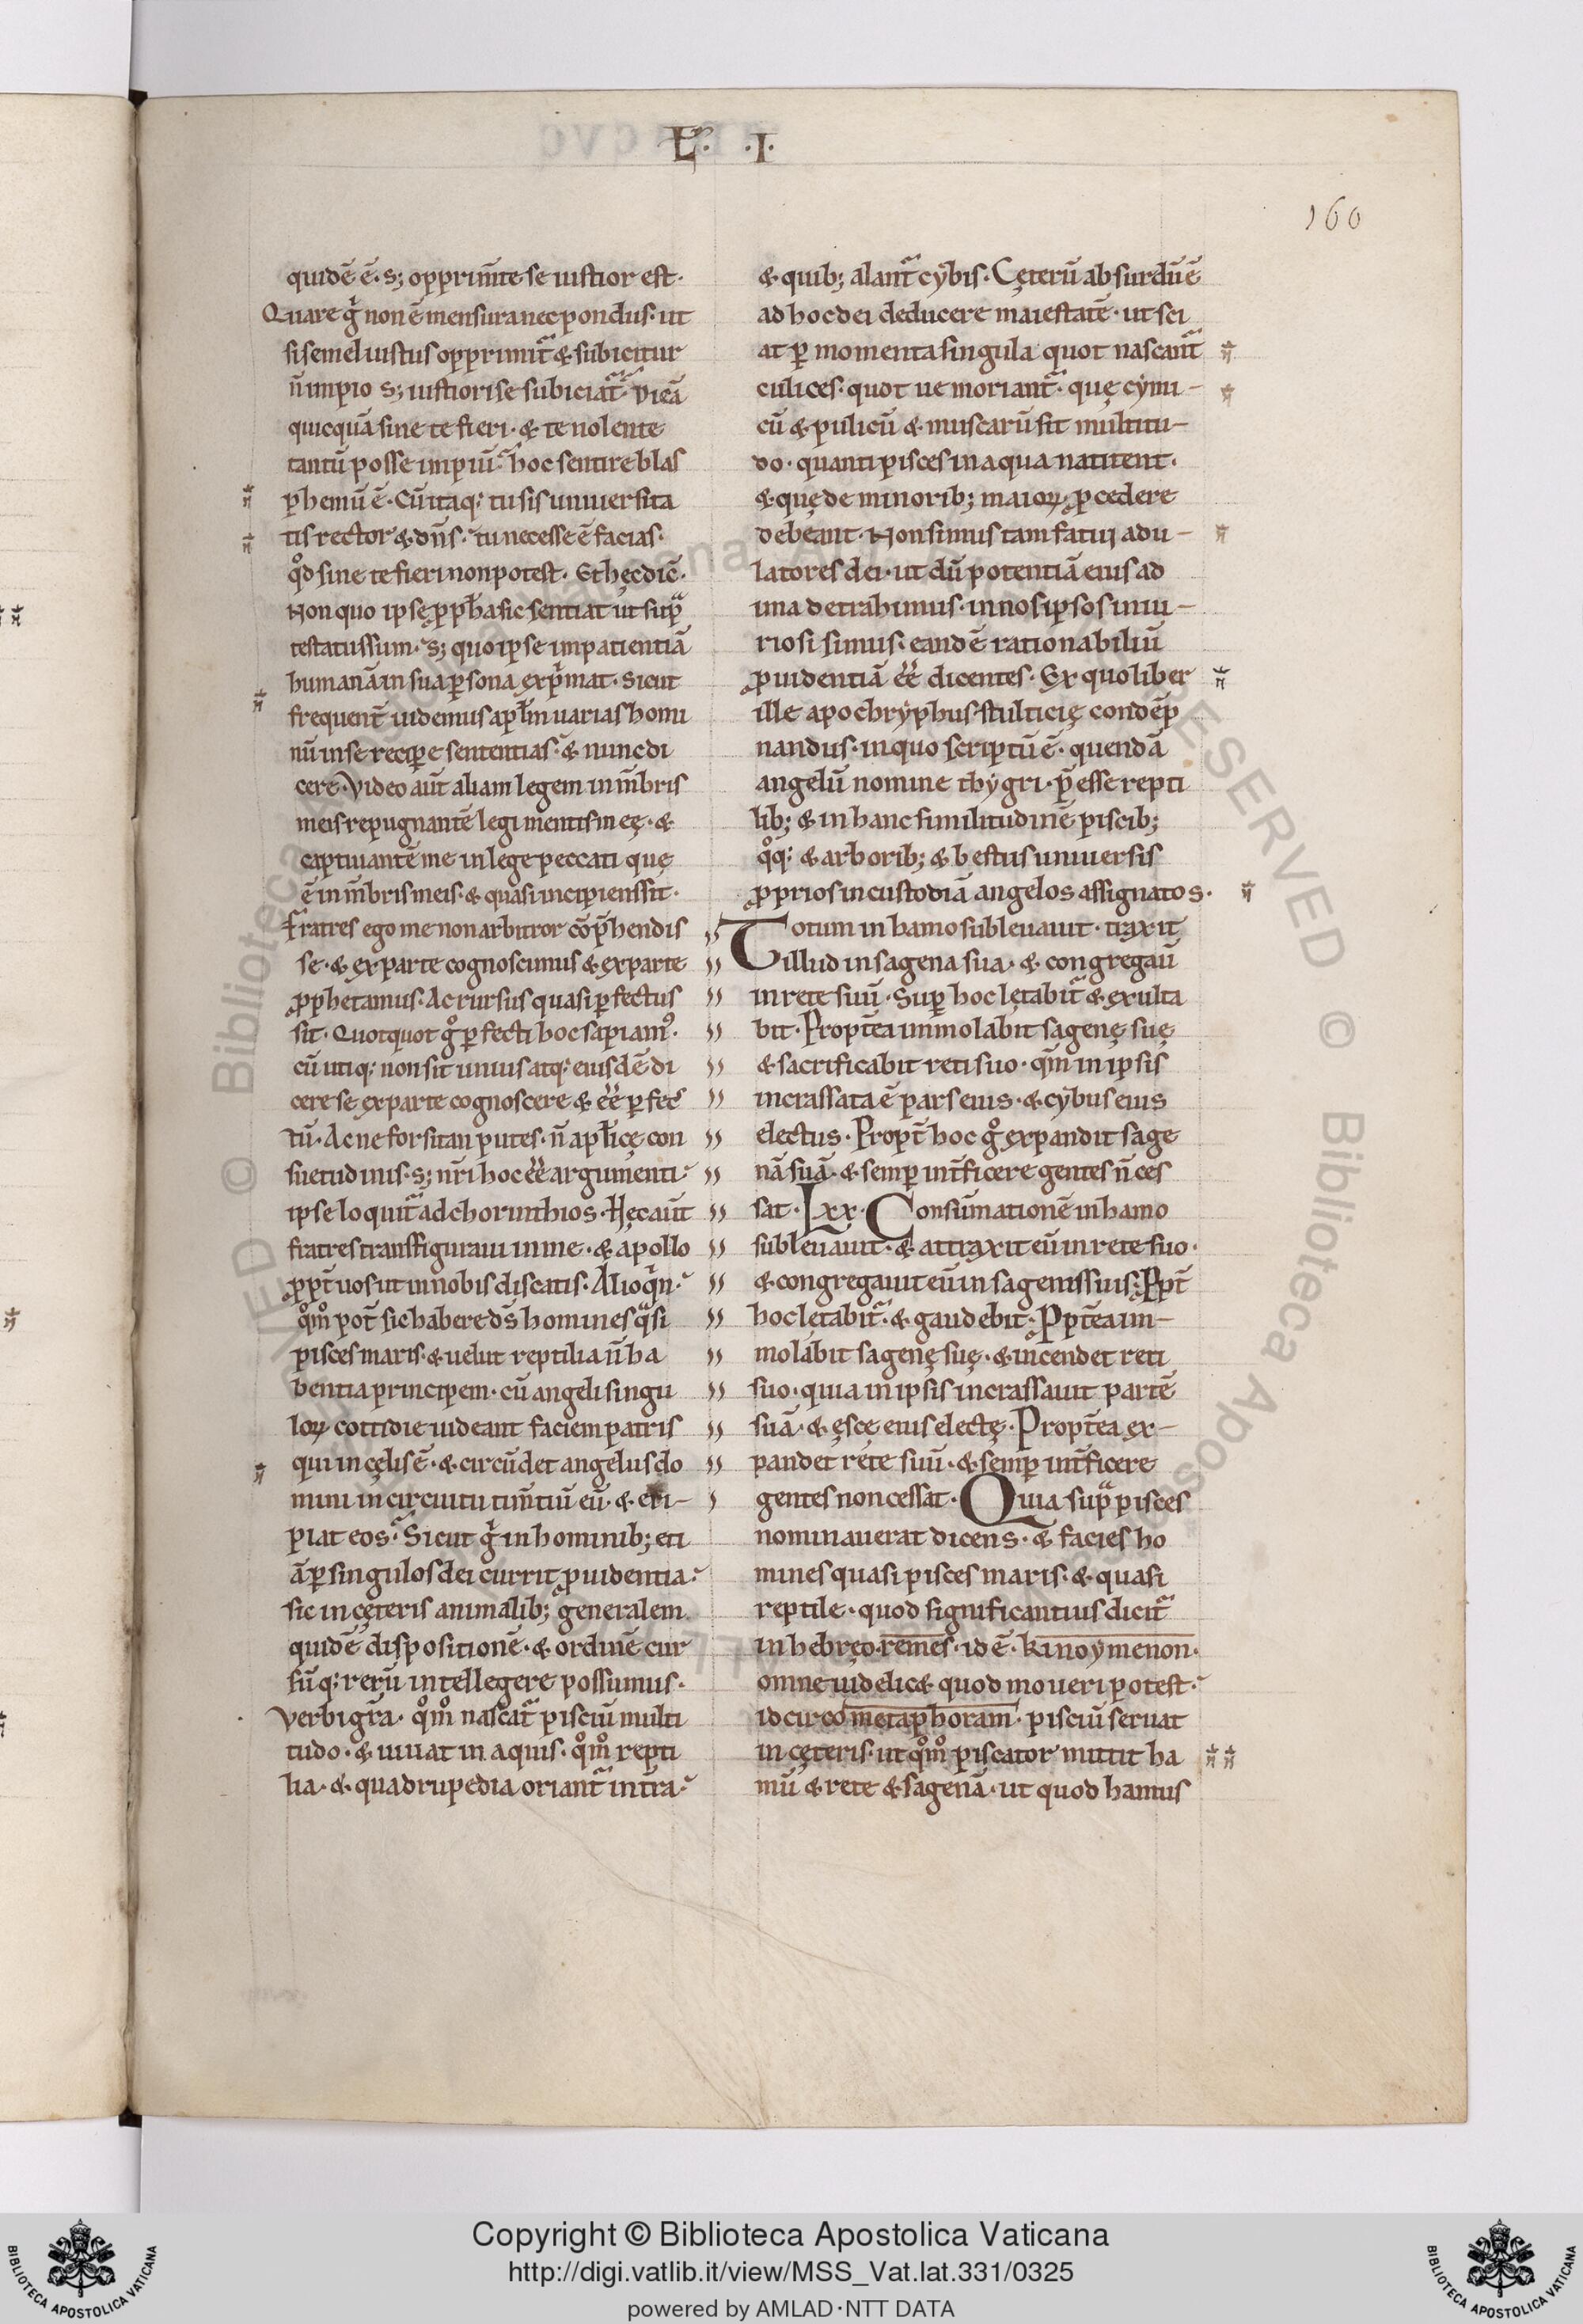 L̃. .I.
160
quidē ē· s; opprim̄te se iustior est·
Quare g̊ non ē mensura nec pondus· ut
si semel iustus opprimit̃ & subicitur
n̄ impio s; iustiori se subiciat̃· Dicā
quicquā sine te fieri· & te nolente
tantū posse impiū· hoc sentire blas
phemū ē· Cū itaq; tu sis uniuersita
tis rector & dn̄s· tu necesse ē facias·
qđ sine te fieri non potest· Et hęc dic̄·
Non quo ipse ꝓpħa sic sentiat ut sup̃
testatus sum· s; quo ipse impatientiā
humanā in sua ꝑsona exp̃mat· sicut
frequent̄ uidemus apl̄m uarias homi
nū in se recipe sententias· & nunc di
cere· Video aūt aliam legem in m̄bris
meis repugnantē legi mentis meę· &
captiuantē me in lege peccati quę
ē in m̄bris meis· & quasi incipiens sit·
Fratres ego me non arbitror cōp̄hendis
se· & ex parte cognoscimus & ex parte
ꝓphetamus· Ac rursus quasi ꝑfectus
sit· Quotquot g̊ ꝑfecti hoc sapiam᷒·
cū utiq; non sit unius atq; eiusdē di
cere se ex parte cognoscere & ēē ꝑfec
tū· Ac ne forsitan putes· n̄ apl̄icę con
suetudinis· s; nr̄i hoc ēē argumenti·
ipse loquit̃ ad chorinthios· Hęc aūt
fratres transfiguraui in me· & apollo
ꝓpt̄ uos ut in nobis discatis· Alioq̇n·
qm̊ pot̄ sic habere d̄s homines q̃si
pisces maris· & uelut reptilia n̄ ha
bentia principem· cū angeli singu
loꝝ cottidie uideant faciem patris
qui in cęlis ē· & circūdet angelus do
mini in circuitu tim̄tiū eū· & eri-
piat eos· Sicut g̊ in hominib; eti
ā ꝑ singulos dei currit ꝓuidentia·
sic in cęteris animalib; generalem
quidē dispositionē· & ordinē cur
sūq; rerū intellegere possumus·
Verbi gr̄a· qm̊ nascat̃ pisciū multi
tudo· & uiuat in aquis· qm̊ repti
lia· & quadrupedia oriant̃ in t̄ra·
& quib; alant̃ cybis· Cęterū absurdū ē
ad hoc dei deducere maiestatē· ut sci
at ꝑ momenta singula quot nascant̃
culices· quot ue moriant̃· quę cymi-
cū & pulicū & muscarū sit multitu-
do· quanti pisces in aqua natitent·
& quę de minorib; maioꝝ ꝓcedere
debeant· Non simus tam fatui adu-
latores dei· ut dū potentiā eius ad
ima detrahimus· in nos ipsos iniu-
riosi simus· eandē rationabiliū
ꝓuidentiā ēē dicentes· Ex quo liber
ille apochryphus stulticię condēp
nandus· in quo scriptū ē· quendā
angelū nomine thygri· p̄esse repti
lib; & in hanc similitudinē piscib;
q̊q; & arborib; & bestiis uniuersis
ꝓprios in custodiā angelos assignatos·
Totum in hamo subleuauit· traxit
illud in sagena sua· & congregaū
in rete suū· Sup hoc lętabit̃ & exulta
bit· Propt̄ea immolabit sagenę suę
& sacrificabit reti suo· qm̄ in ipsis
incrassata ē pars eius· & cybus eius
electus· Propt̄ hoc g̊ expandit sage
nā suā· & semp int̄ficere gentes n̄ ces
sat· Lxx· Consūmationē in hamo
subleuauit· & attraxit eū in rete suo·
& congregauit eū in sagenis suis· Ppt̄
hoc letabit̃· & gaudebit· Ppt̄ea im-
molabit sagenę suę· & incendet reti
suo· quia in ipsis incrassauit partē
suā· & ęscę eius electę· Propt̄ea ex-
pandet rete suū· & semp int̄ficere
gentes non cessat· Quia sup̃ pisces
nominauerat dicens· & facies ho
mines quasi pisces maris· & quasi
reptile· quod significantius dicit̃
in hebręo remes· id ē· kinoymenon·
omne uidelic& quod moueri potest·
idcirco metaphoram· pisciū seruat
in cęteris· ut qm̊ piscator mittit ha
mū & rete & sagenā· ut quod hamus
Copyright © Biblioteca Apostolica Vaticana
http://digi.vatlib.it/view/MSS_Vat.lat.331/0325
powered by AMLAD·NTT DATA
BIBLIOTECA APOSTOLICA VATICANA
BIBLIOTECA APOSTOLICA VATICANA